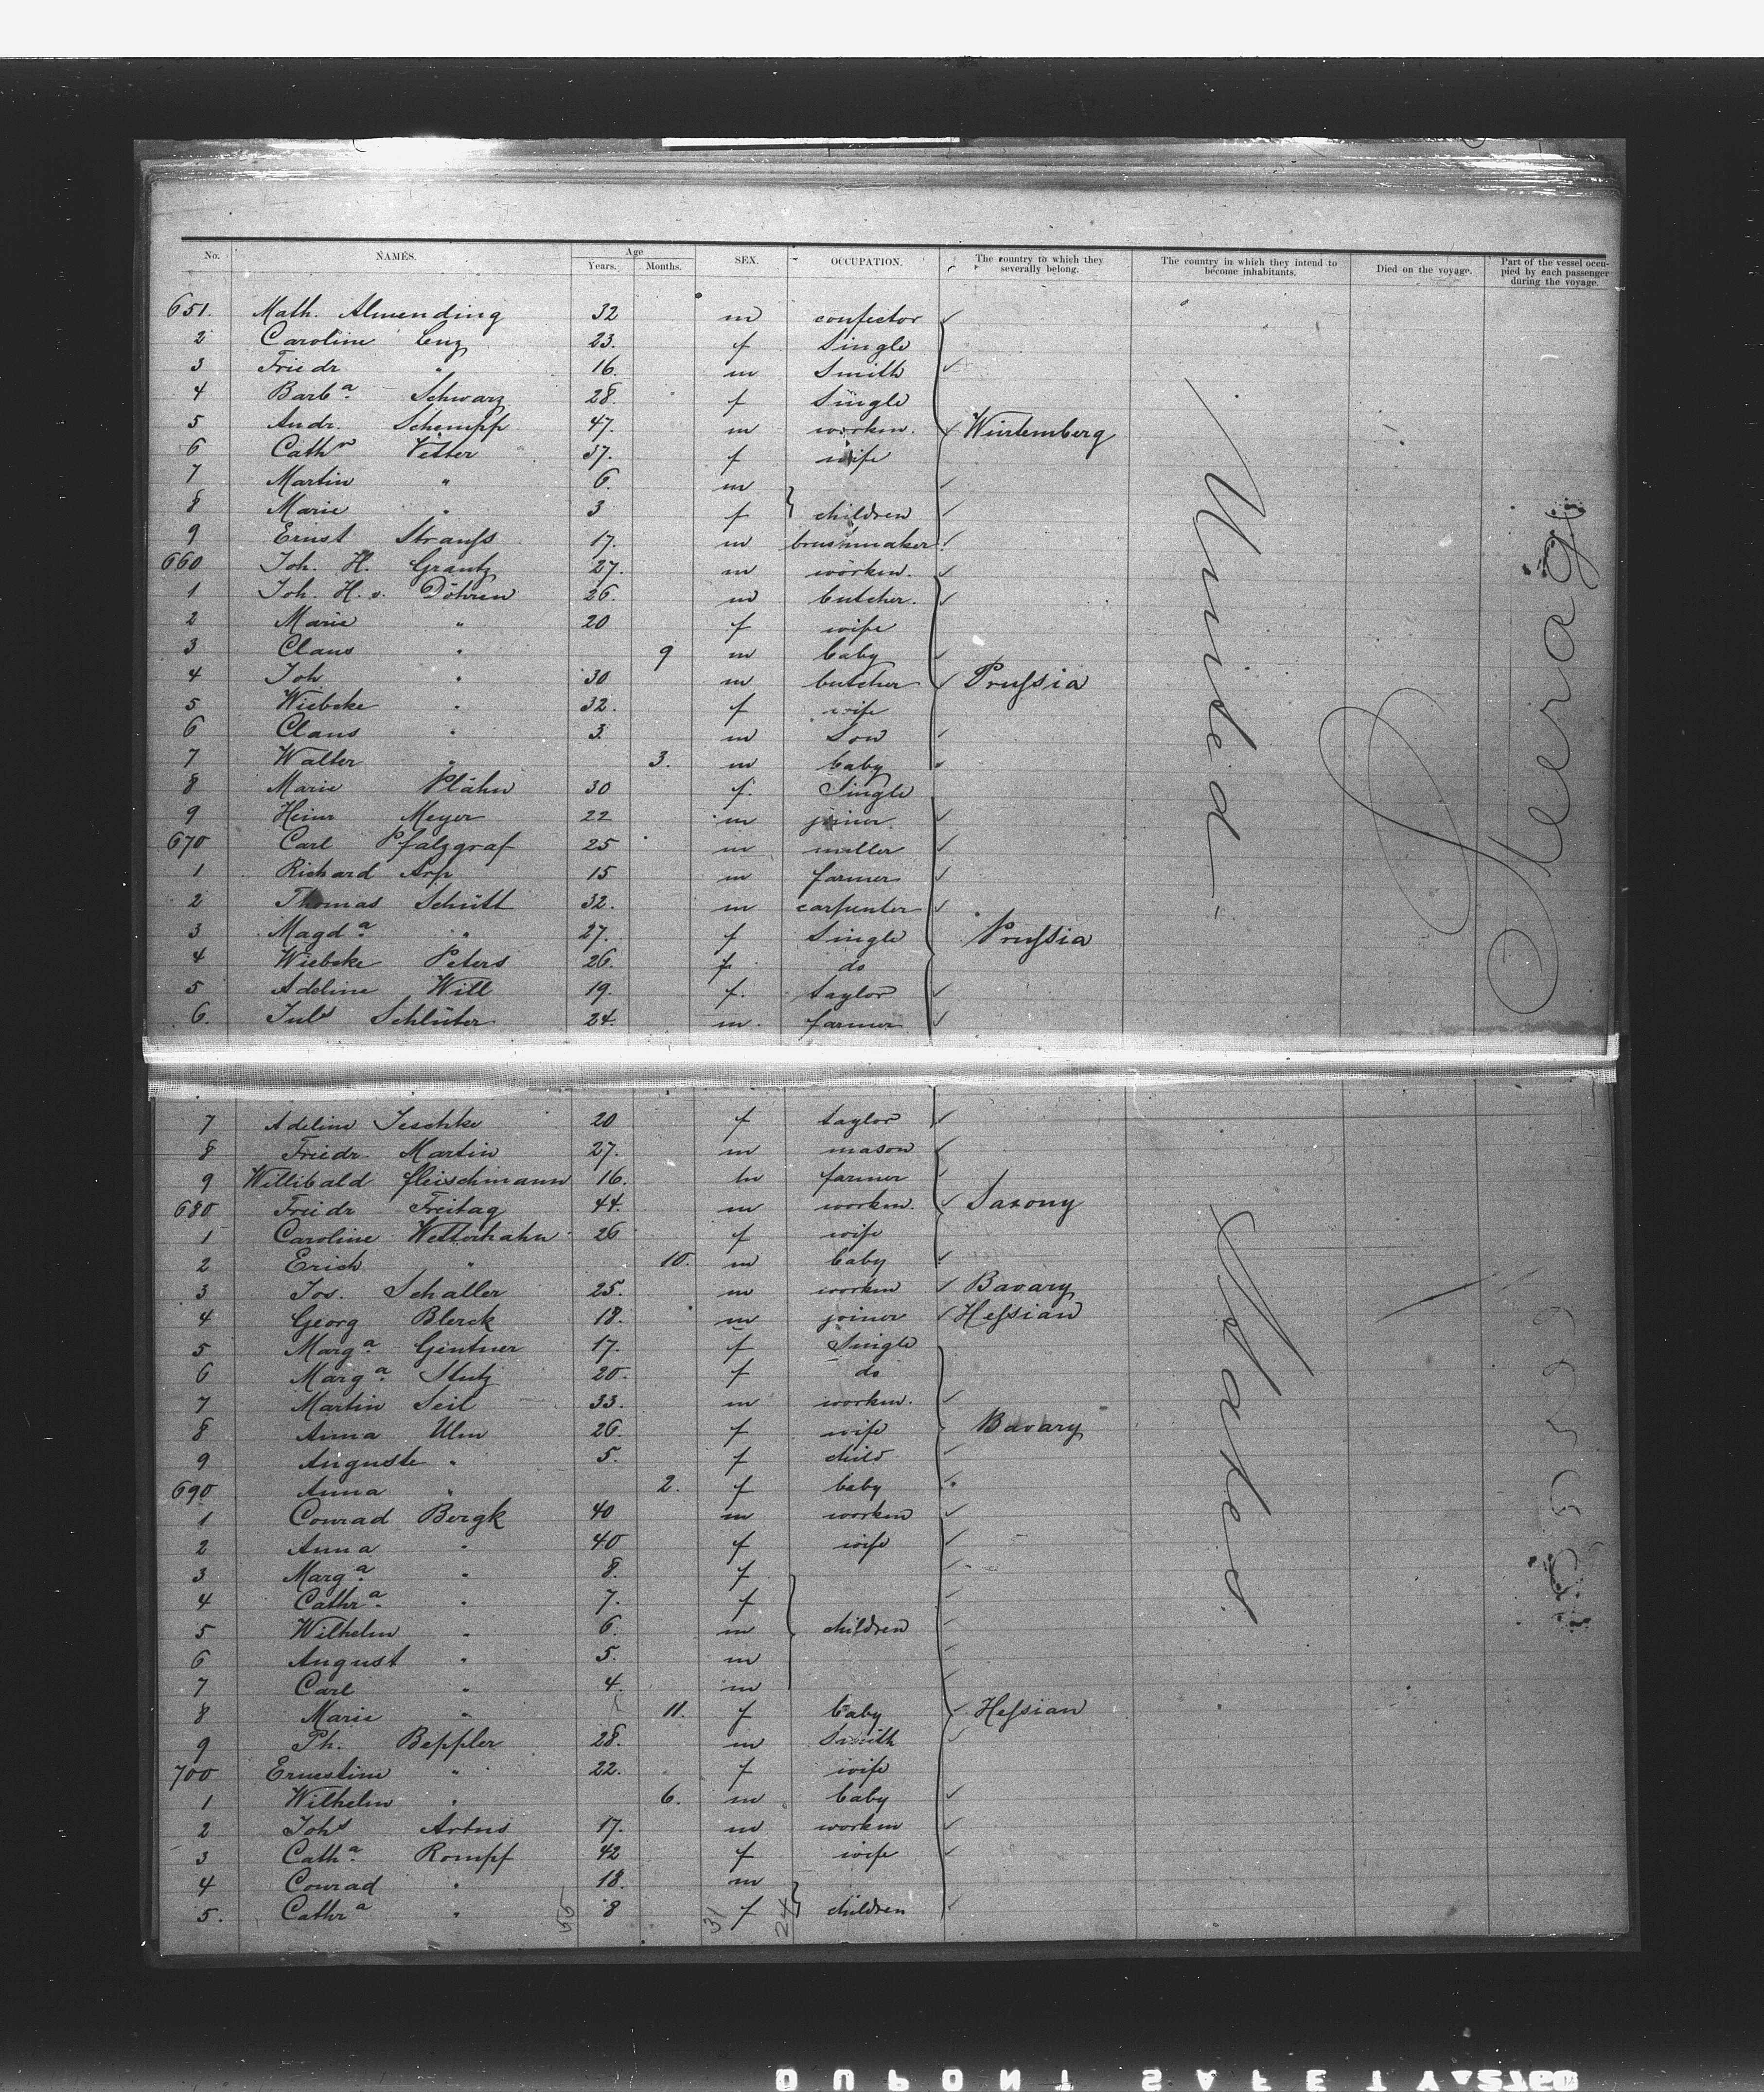 No. NAMES. Age Years. Months. SEX. OCCUPATION. The country to which they severally belong. The country in which they intend to become inhabitants. Died on the voyage. Part of the vessel occupied by each passenger during the voyage.
651. Math. Almending 32 m confector
2 Caroline Enz 23. f Single
3 Friedr " 16. m Smith
4 Barbª Schwarz 28. f Single
5 Andr. Schempp 47. m workm. Würtemberg
6 Cathª Vetter 37. f wife
7 Martin " 6. m
8 Marie " 3 f children
9 Ernst Strauss 17. m brushmaker
660 Joh. H. Grantz 27. m workm.
1 Joh. H. v. Döhren 26. m butcher.
2 Marie " 20 f wife
3 Claus " 9 m baby
4 Joh " 30 m butcher Prussia
5 Wiebcke " 32. f wife
6 Claus " 3. m Son
7 Walter " 3. m baby
8 Marie Plähn 30 f. Single
9 Heinr Meyer 22 m joiner
670 Carl Pfalzgraf 25 m miller
1 Richard Arp 15 m farmer
2 Thomas Schütt 32. m carpenter
3 Magdª " 27. f Single Prussia
4 Wiebcke Peters 26. f do
5 Adeline Will 19. f. taylor
6. Juls Schlüter 24. m. farmer
United
Steerage
7 Adeline Jeschke 20 f taylor
8 Friedr. Martin 27. m mason
9 Willibald Fleischmann 16. m farmer
680 Friedr Freitag 44. m workm. Saxony
1 Caroline Wetterhahn 26 f wife
2 Erich " 10. m baby
3 Jos. Schaller 25. m workm Bavary
4 Georg Blerck 18. m joiner Hessian
5 Margª Gentner 17. f Single
6 Margª Stutz 20. f do
7 Martin Seil 33. m workm.
8 Anna Ulm 26. f wife Bavary
9 Auguste " 5. f child
690 Anna " 2. f baby
1 Conrad Bergk 40 m workm
2 Anna " 40 f wife
3 Margª " 8. f
4 Cathrª " 7. f
5 Wilhelm " 6. m children
6 August " 5. m
7 Carl " 4. m
8 Marie " 11. f baby Hessian
9 Ph. Beppler 28. m Smith
700 Ernestine " 22. f wife
1 Wilhelm " 6. m baby
2 Johs Artus 17. m workm
3 Cathª Rompf 42 f wife
4 Conrad " 18. m
5. Cathrª " 8 f children
55 31 24
States
DUPONT SAFETY